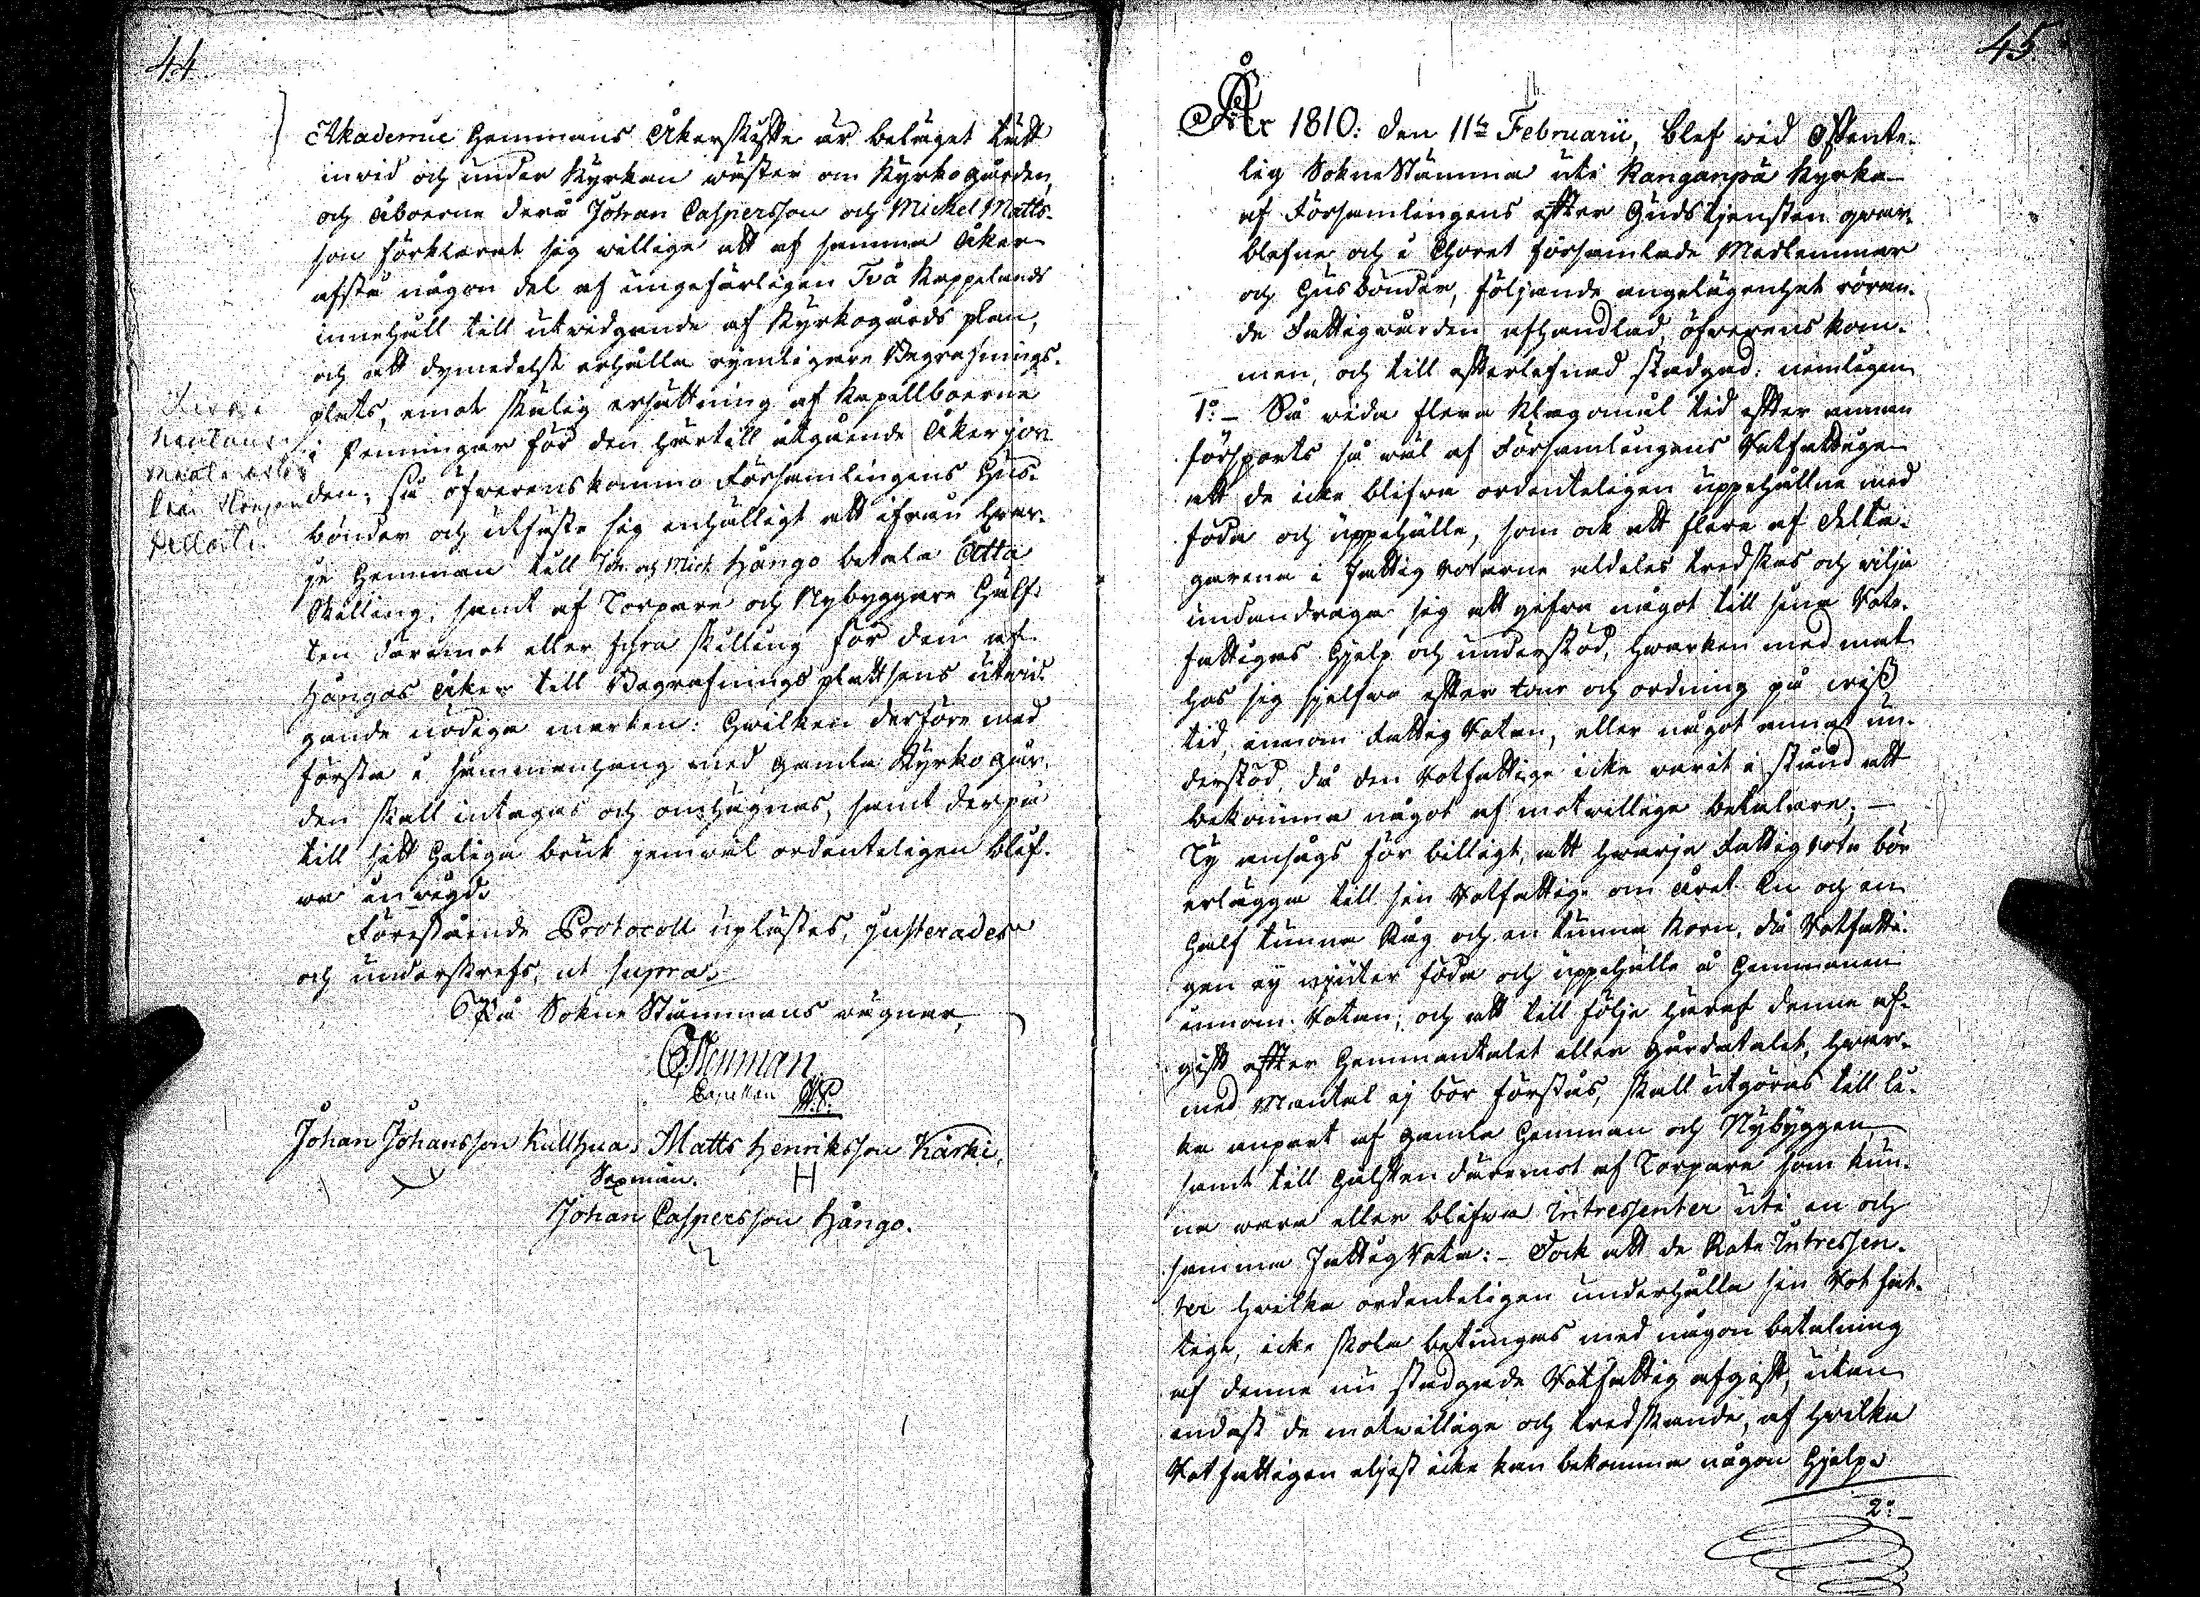 44
Akademie Hemmans Åkerskifte är beläget tätt
invid och under Kyrkan wäster om Kyrkogården,
och åboerne derå Johan Caspersson och Mickel Matts-
son förklarat sig willige att af samma Åker
afstå någon del af ungefärligen Två Kappelands
innehåll till utwidgande af Kyrkogårds plan,
och att dymedelst erhålla rymligare Begrafnings-
plats, emot skälig ersättning af Kapellboerne
i Penningar för den härtill åtgående Åkerjor-
den; så öfwerenskommo Församlingens Hus-
bönder och utfäste sig enhälligt att ifrån hwar-
je Hemman till Joh. och Mich. Hångo betala Åtta
Skilling, samt af Torpare och Nybyggare Hälf-
ten däremot eller fyra skilling för dem af
Hångos åker till Begrafnings plattsens utwid-
gande nödige marken: Hwilken derföre med
första i sammanhang med gamla Kyrkogår-
den skall intagas och omhägnas, samt derpå
till sitt heliga bruk jemwäl ordenteligen blif-
wa inwigd.
Förestående Protocoll uplästes, justerades
och underskrefs, ut supra.
På Sokne Stämmans wägnar,
Capellan
Johan Johansson Kullhua. Matts Henriksson Kärki,
Sexman. H
Johan Caspersson Hångo.
45.
År 1810: den 11te Februarii, blef wid Offente-
lig Sokne Stämma uti Kanganpä Kyrka
af Församlingens efter Gudstjensten qwar-
blefne och i Choret församlade Medlemmar
och Husbönder, följande angelägenhet röran-
de Fattigwården afhandlad, öfwerenskom-
men, och till efterlefnad stadgad: nemligen
1o:- Så wida flera Klagomål tid efter annan
försports så wäl af Församlingens Rotfattige
att de icke blifwa ordenteligen uppehållne med
föda och uppehälle, som ock att flera af delta-
garena i fattig roterne aldeles tredskas och wilja
undandraga sig att gifwa något till sina Rote-
fattigas hjelp och understöd, hwarken med mat
hos sig sjelfwa efter tour och ordning på wiss
tid, innom Fattig Rotan, eller något annat un-
derstöd, då den Rotfattige icke warit i stånd att
bekomma något af motwillige betalare; —
Ty ansågs för billigt, att hwarje Fattig rote bör
erlägga till sin Rotfattige om Året En och en
Half tunna Råg och en tunna Korn, då Rotfatti-
gen ej njuter föda och uppehälle å Hemmanen
innom Rotan; och att till följe häraf denna af-
gift efter Hemmantalet eller gårdatalet, hwar-
med Mantal ej bör förstås, skall utgöras till li-
ka anpart af gamla Hemman och Nybyggen
samt till hälften däremot af Torpare som kun-
na wara eller blifwa Intressenter uti en och
samma fattig Rota: - Dock att de Rote Intressen-
ter hwilka ordenteligen underhålla sin Rot fat-
tige, icke skola betungas med någon betalning
af denna nu stadgade Rotfattig afgift, utan
endast de motwillige och tredskande, af hwilka
Rotfattigen eljest icke kan bekomma någon hjelp.
2o:-